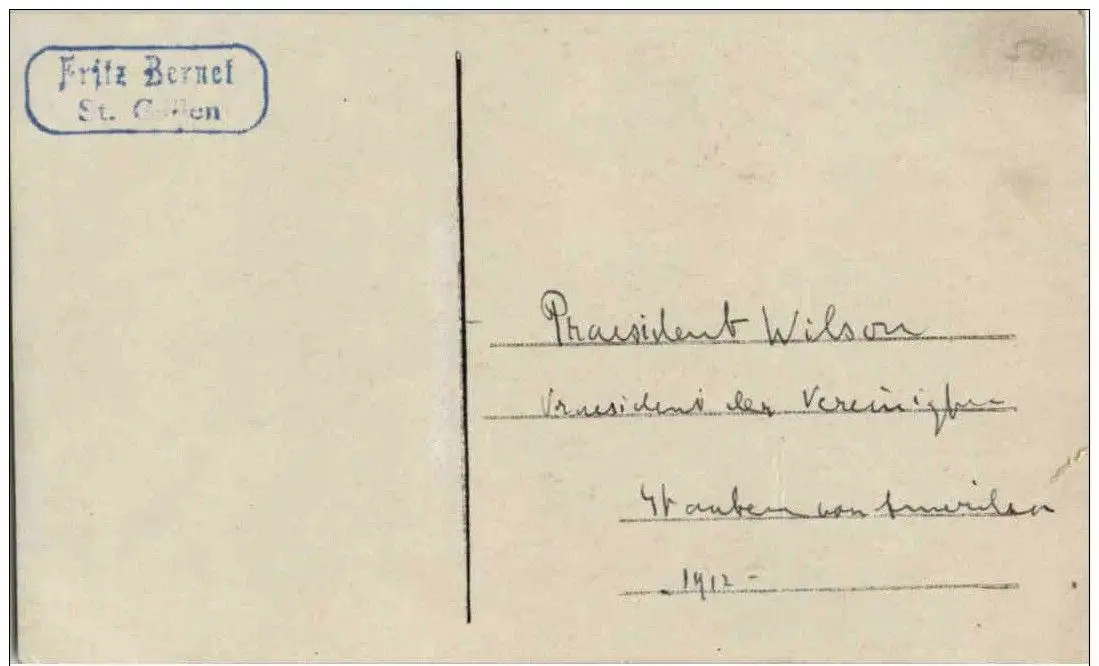 Fritz Bernet
St. Gallen
50
Praesident Wilson
Praesident der Vereinigten
Staaten von Amerika
1912 -